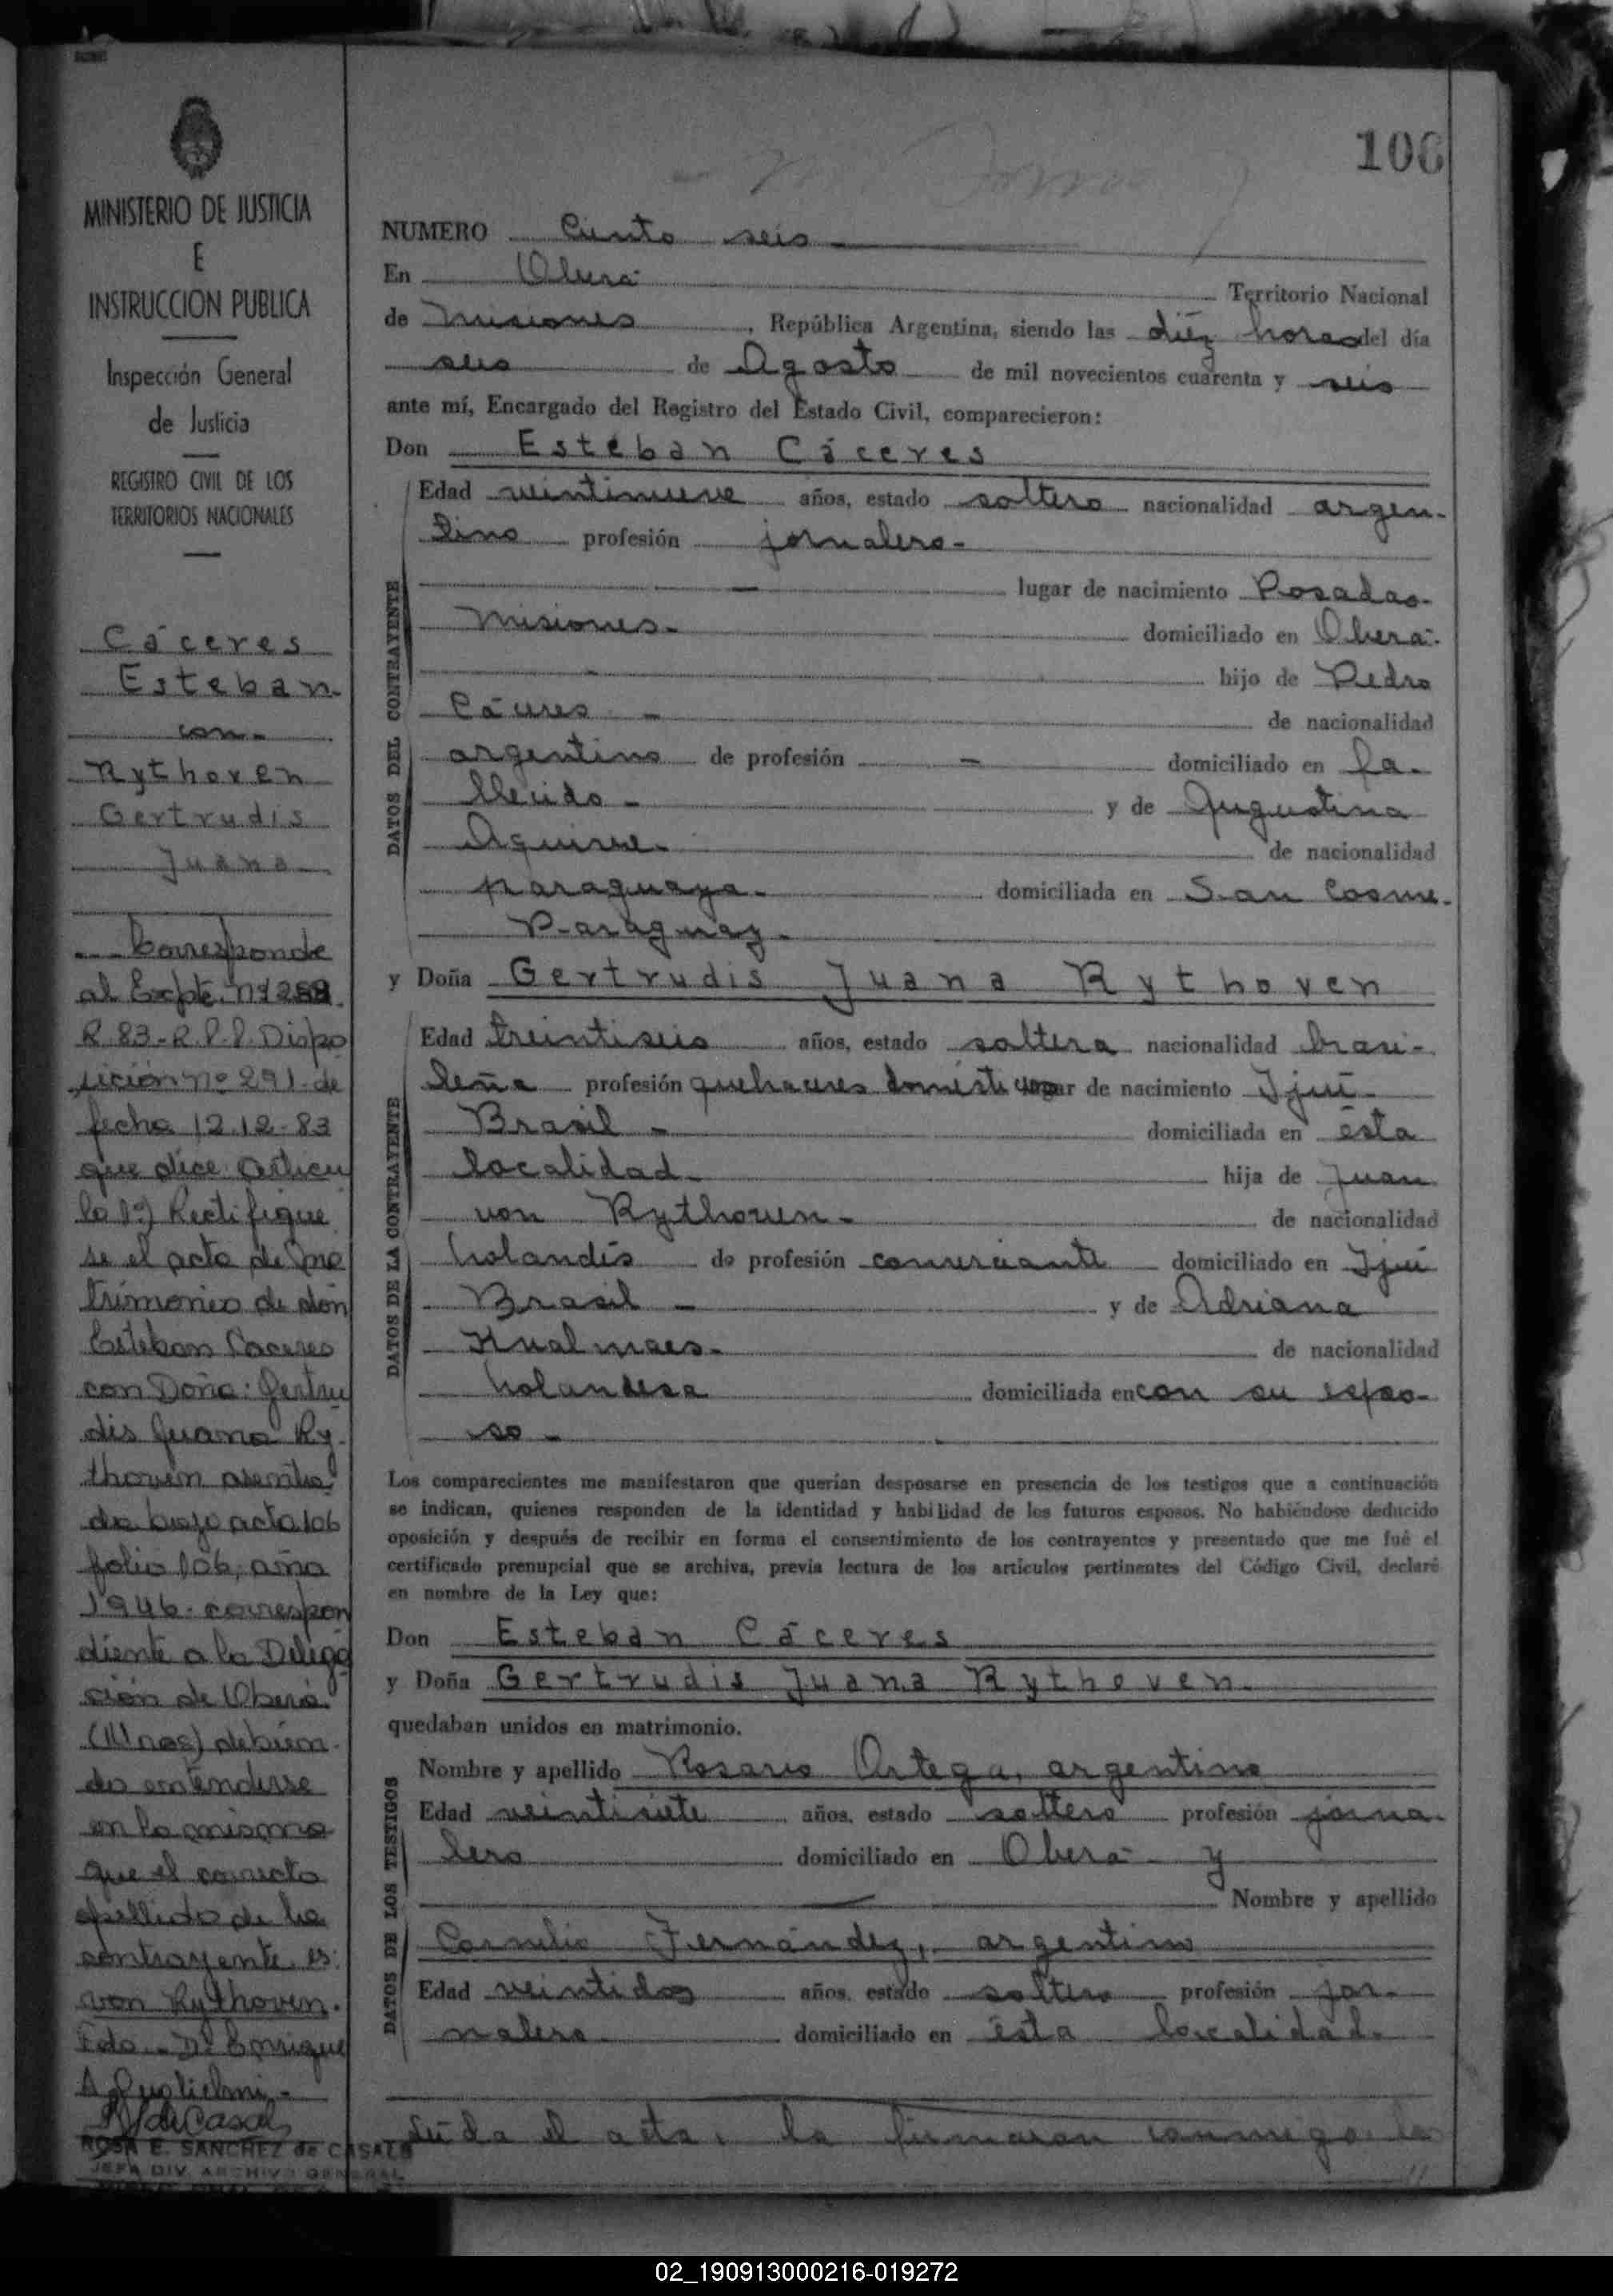 106
MINISTERIO DE JUSTICIA
E
INSTRUCCION PUBLICA
Inspección General
de Justicia
REGISTRO CIVIL DE LOS
TERRITORIOS NACIONALES
Cáceres
Esteban
con
Rythoven
Gertrudis
Juana
Corresponde
al Expte. Nº
R.83-R.P.P. Dispo
sición nº 291 de
fecha 12.12.83
que dice: Artícu
lo 1º) Rectifíque
se el acta de ma
trimonio de don
Esteban Caceres
con Doña: Gertru
dis Juana Ry
thoven asenta
da bajo acta 106
folio 106, año
1946. correspon
diente a la Delega
ción de Oberá
(Mnes) debien
do entenderse
en la misma
que el correcto
apellido de la
contrayente es:
von Rythoven.
Fdo. Dr Enrique
A. Guglielmi.-
ROSA E. SANCHEZ de CASALS
JEFA DIV. ARCHIVO GENERAL
NUMERO Ciento seis
En Oberá Territorio Nacional
de Misiones, República Argentina, siendo las diéz horas del día
seis de Agosto de mil novecientos cuarenta y seis
ante mí, Encargado del Registro del Estado Civil, comparecieron:
Don Esteban Cáceres
DATOS DEL CONTRAYENTE
Edad veintinueve años, estado soltero nacionalidad argen-
tino profesión jornalero-
lugar de nacimiento Posadas-
Misiones- domiciliado en Oberá-
hijo de Pedro
Cáceres - de nacionalidad
argentino de profesión - domiciliado en fa-
llecido - y de Augustina
Aguirre- de nacionalidad
paraguaya- domiciliada en San Cosme-
Paraguay-
y Doña Gertrudis Juana Rythoven
DATOS DE LA CONTRAYENTE
Edad treintiseis años, estado soltera nacionalidad brasi-
leña profesión quehaceres domésticos lugar de nacimiento Ijuí-
Brasil - domiciliada en ésta
localidad- hija de Juan
von Rythoven- de nacionalidad
holandés de profesión comerciante domiciliado en Ijuí
Brasil - y de Adriana
Kualmaes- de nacionalidad
holandesa domiciliada en con su espo-
so -
Los comparecientes me manifestaron que querían desposarse en presencia de los testigos que a continuación
se indican, quienes responden de la identidad y habilidad de los futuros esposos. No habiéndose deducido
oposición y después de recibir en forma el consentimiento de los contrayentes y presentado que me fué el
certificado prenupcial que se archiva, previa lectura de los artículos pertinentes del Código Civil, declaré
en nombre de la Ley que:
Don Esteban Cáceres
y Doña Gertrudis Juana Rythoven-
quedaban unidos en matrimonio.
DATOS DE LOS TESTIGOS
Nombre y apellido Rosario Ortega, argentino
Edad veintisiete años, estado soltero profesión jorna-
lero domiciliado en Oberá- y
Nombre y apellido
Cornelio Fernández, argentino
Edad veintidos años, estado soltero profesión jor-
nalero domiciliado en ésta localidad.
Leída el acta, la firmaron conmigo, los
02_190913000216-019272